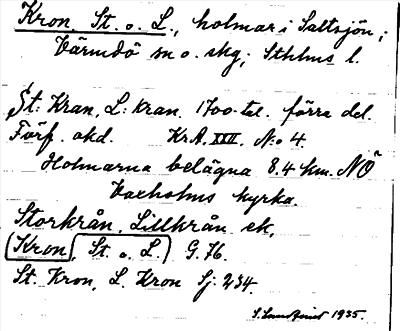 Kron, St. o. L., holmar i Saltsjön,;
Värmdö sn o. skg; Sthlms l.
St: Kran, L: Kran. 1700-tal. förra del.
Förf. okd. Kr.A. XXII. N:o 4.
Holmarna belägna 8.4 km. NÖ
Vaxholms kyrka.
Storkrån, Lillkrån ek.
Kron, St. o. L. G. 76.
St. Kron, L. Kron Sj. 234.
1935.